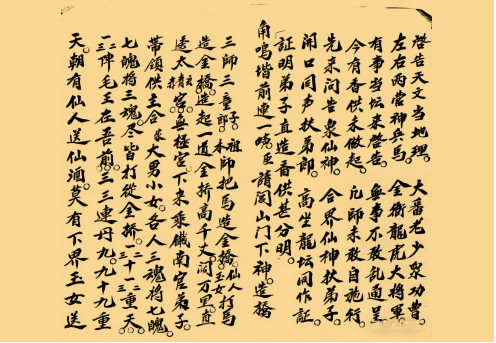 啓告天文当地理。大番老少衆功曹
左右两营神兵馬。金衛龍虎大将軍
有事当坛来啓告。無事不敢乱通呈
今有香供未做起。凡師未敢自施行
先来问告衆仙神。合界仙神扶弟子。
開口同声扶弟郎。高坐龍坛同作証
証明弟子直造香供甚分明。
角鳴堦前連一吹。亜請闾山門下神。造橋
三師三童子郎。祖本師把馬造金橋。仙人玉女打馬
造金橋。造起一道金桥高千丈闊万里。直
透太清宫。無極宫。下来乘鐵南宫弟子。
帶領供主合家大男小女。各人三魂将七魄。
七魄将三魂。尽皆打從金桥。一十二十三重天。
一二三俾毛王在吾前。三三連丹九九十九重
天。朝有仙人送仙酒。莫有下界玉女送